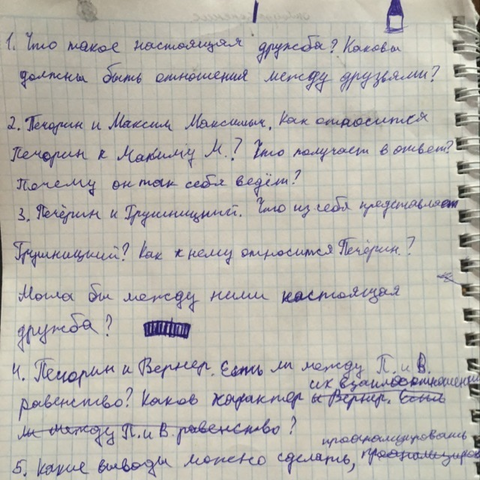 1. Что такое настоящая дружба? Каковы
должны быть отношения между друзьями?
2. Печорин и Максим Максимыч. Как относится
Печорин к Максиму М.? Что получает в ответ?
Почему он так себя ведёт?
3. Печорин и Грушницкий. Что из себя представляет
Грушницкий? Как к нему относится Печорин?
Могла бы между ними настоящая
дружба?
4. Печорин и Вернер. Есть ли между П. и В.
равенство? Каков характер их взаимоотношений
и Вернер. Есть
ли между П. и В. равенство?
5. Какие выводы можно сделать, проанализировать